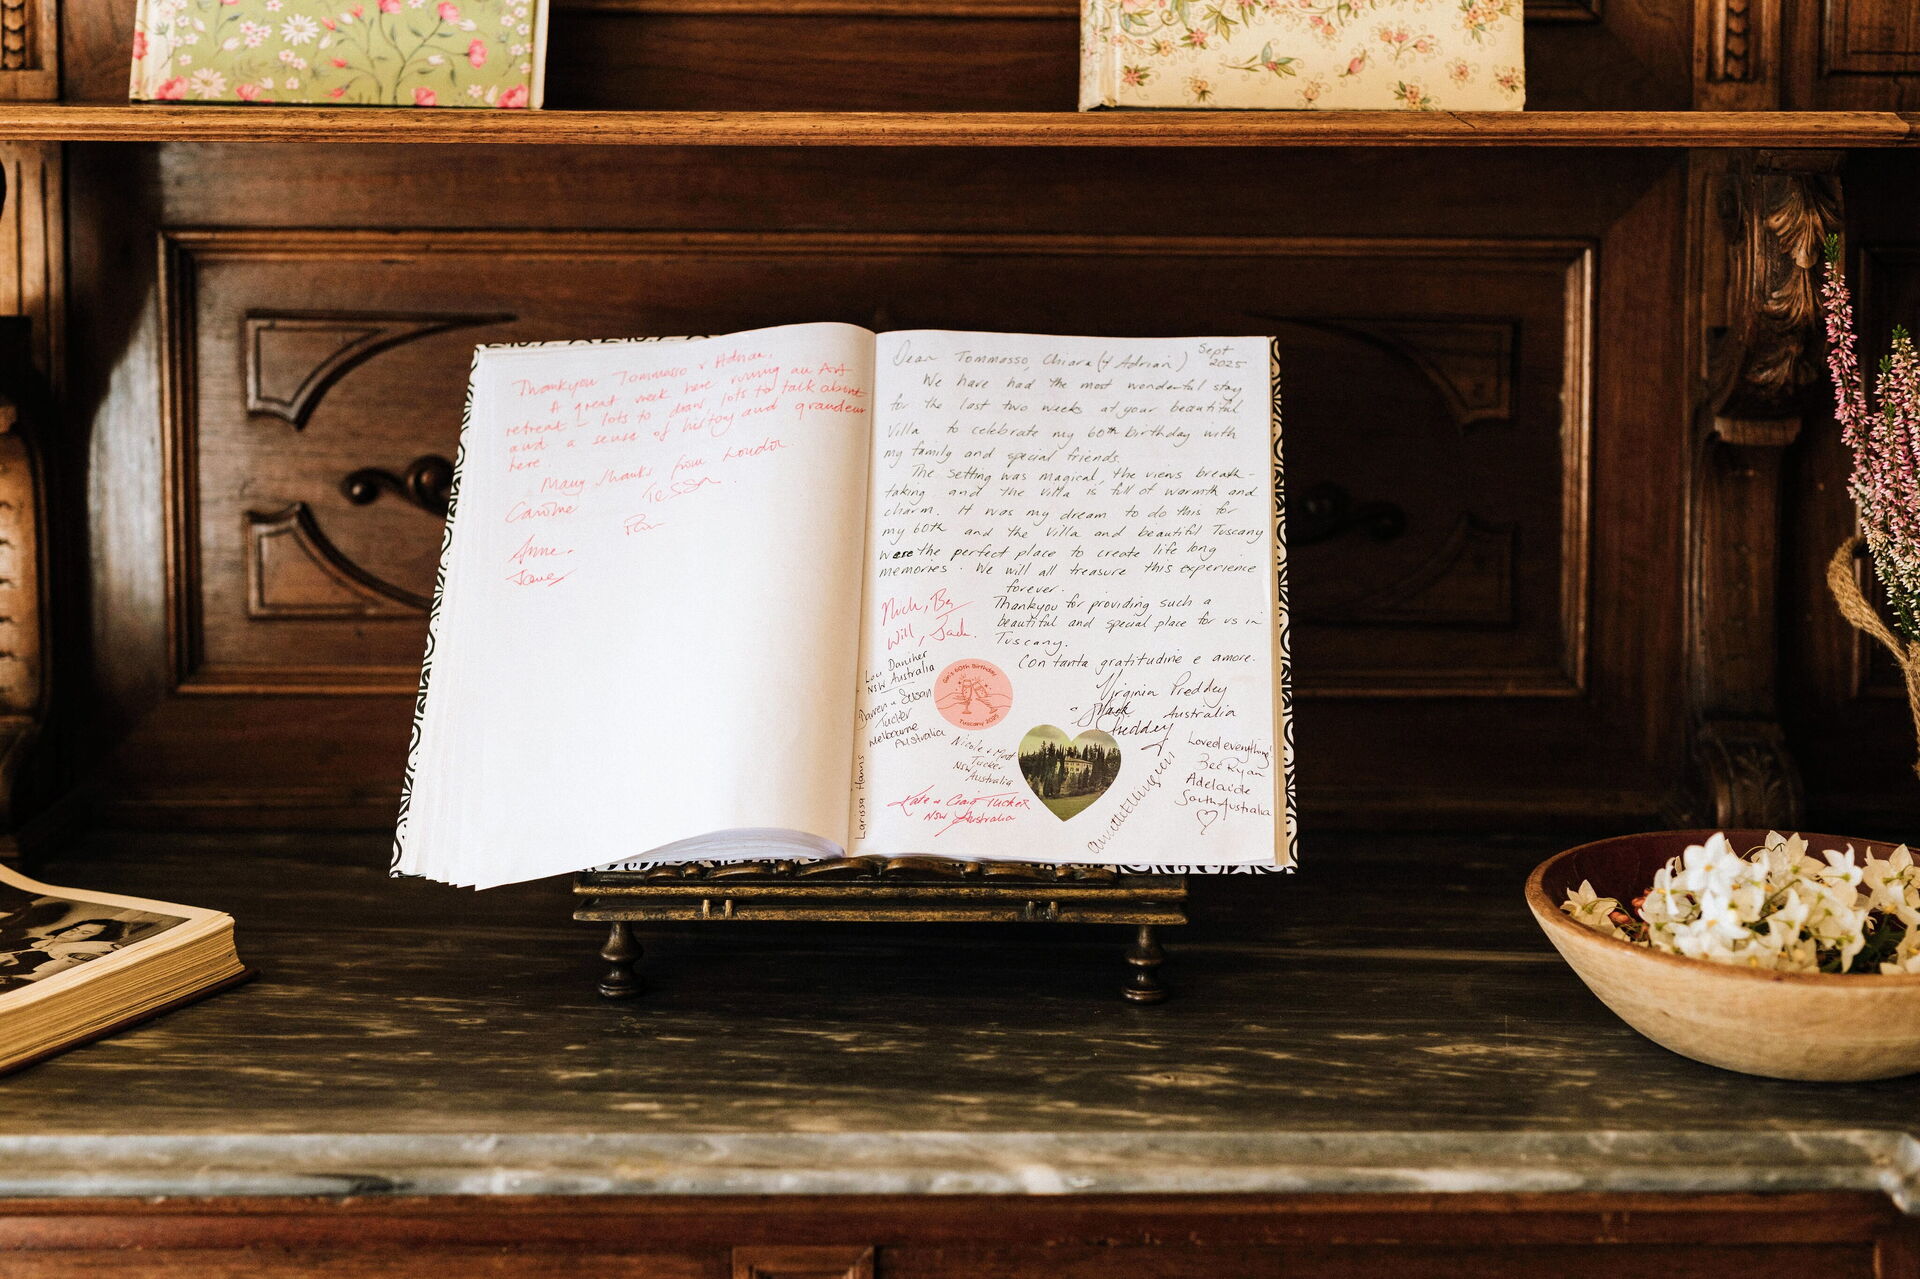 Thankyou Tommasso + Adrian,
A great week here running an Art
retreat - lots to draw lots to talk about
and a sense of history and grandeur
here.
Many thanks from London.
Caroline
Tessa.
Anne.
Dear Tommasso, Chiara (& Adrian)
Sept
2025
We have had the most wonderful stay
for the last two weeks at your beautiful
Villa to celebrate my 60th birthday with
my family and special friends.
The setting was magical, the views breath-
taking and the villa is full of warmth and
charm. It was my dream to do this for
my 60th and the Villa and beautiful Tuscany
were the perfect place to create life long
memories. We will all treasure this experience
forever.
Thankyou for providing such a
beautiful and special place for us in
Tuscany.
Con tanta gratitudine e amore.
Virginia Preddey
& Mark Preddey
Australia
Will, Jack.
Lou Daniher
NSW Australia
Darren & Susan
Tucker
Melbourne
Australia
60th Birthday
Tuscany 2025
Nicole + Matt
Tucker
NSW
Australia
Larissa Harris
Kate & Craig Tucker
NSW Australia
Loved everything!
Bec Ryan
Adelaide
South Australia